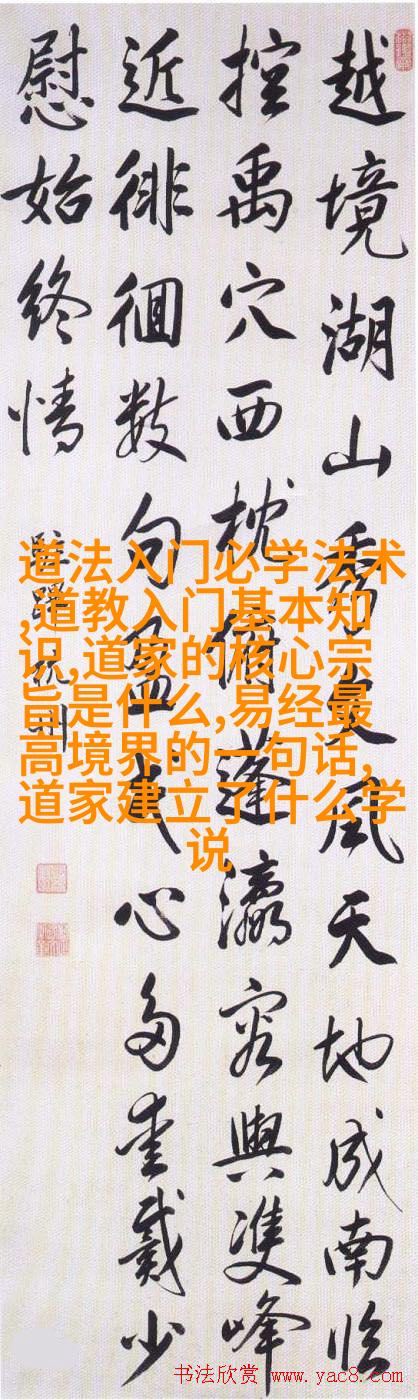 越境湖山秀文風天地成南臨
控禹穴西枕俯蓬瀛容與雙峰
近徘徊数句盈民心多愛戴少
慰始終情
杭州
道法入门必学法术
,道教入门基本知
识,道家的核心宗
旨是什么,易经最
高境界的一句话,
道家建立了什么学
说
书法欣赏 www.yac8.com